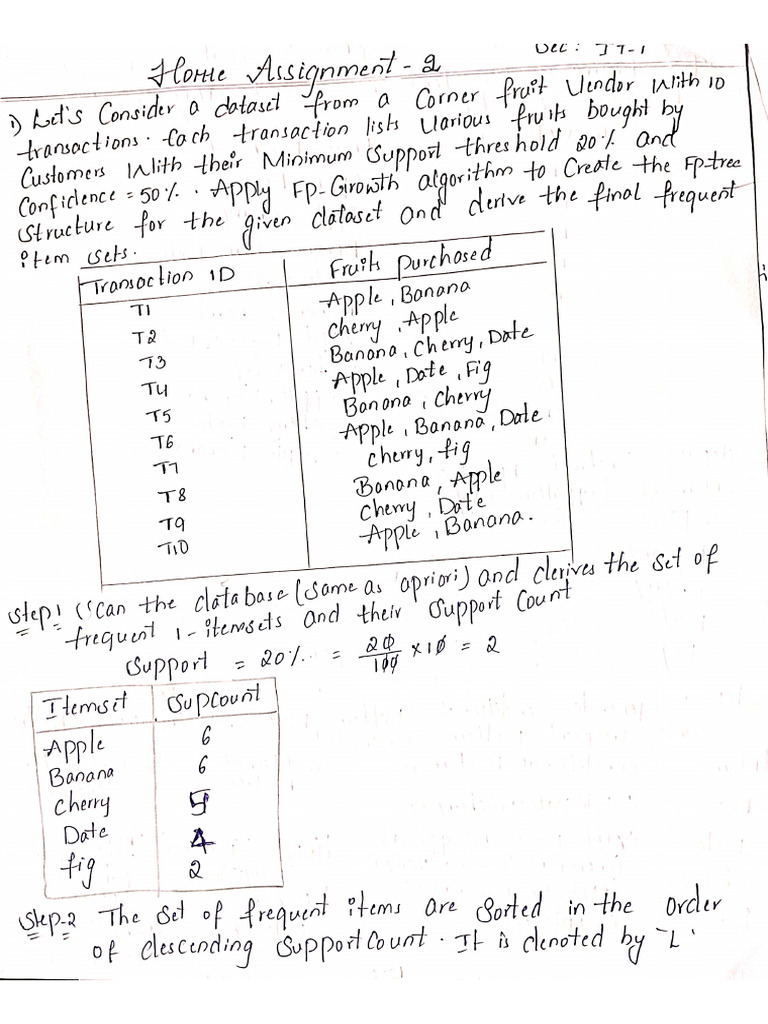 Sec: IT-1
Home Assignment - 2
1) Let's Consider a dataset from a Corner fruit Vendor With 10
transactions. Each transaction lists Various fruits bought by
Customers With their Minimum Support threshold 20% and
Confidence = 50%. Apply FP-Growth algorithm to Create the Fp-tree
Structure for the given dataset and derive the final frequent
item sets.
Transaction ID Fruits purchased
T1 Apple, Banana
T2 cherry, Apple
T3 Banana, Cherry, Date
T4 Apple, Date, Fig
T5 Banana, Cherry
T6 Apple, Banana, Date
T7 Cherry, fig
T8 Banana, Apple
T9 Cherry, Date
T10 Apple, Banana.
Step1 Scan the database (same as apriori) and derives the set of
frequent 1-itemsets and their Support Count
Support = 20% = 20/100 × 10 = 2
Itemset Supcount
Apple 6
Banana 6
cherry 5
Date 4
fig 2
Step-2 The set of frequent items are Sorted in the order
of descending Support Count. It is denoted by 'L'